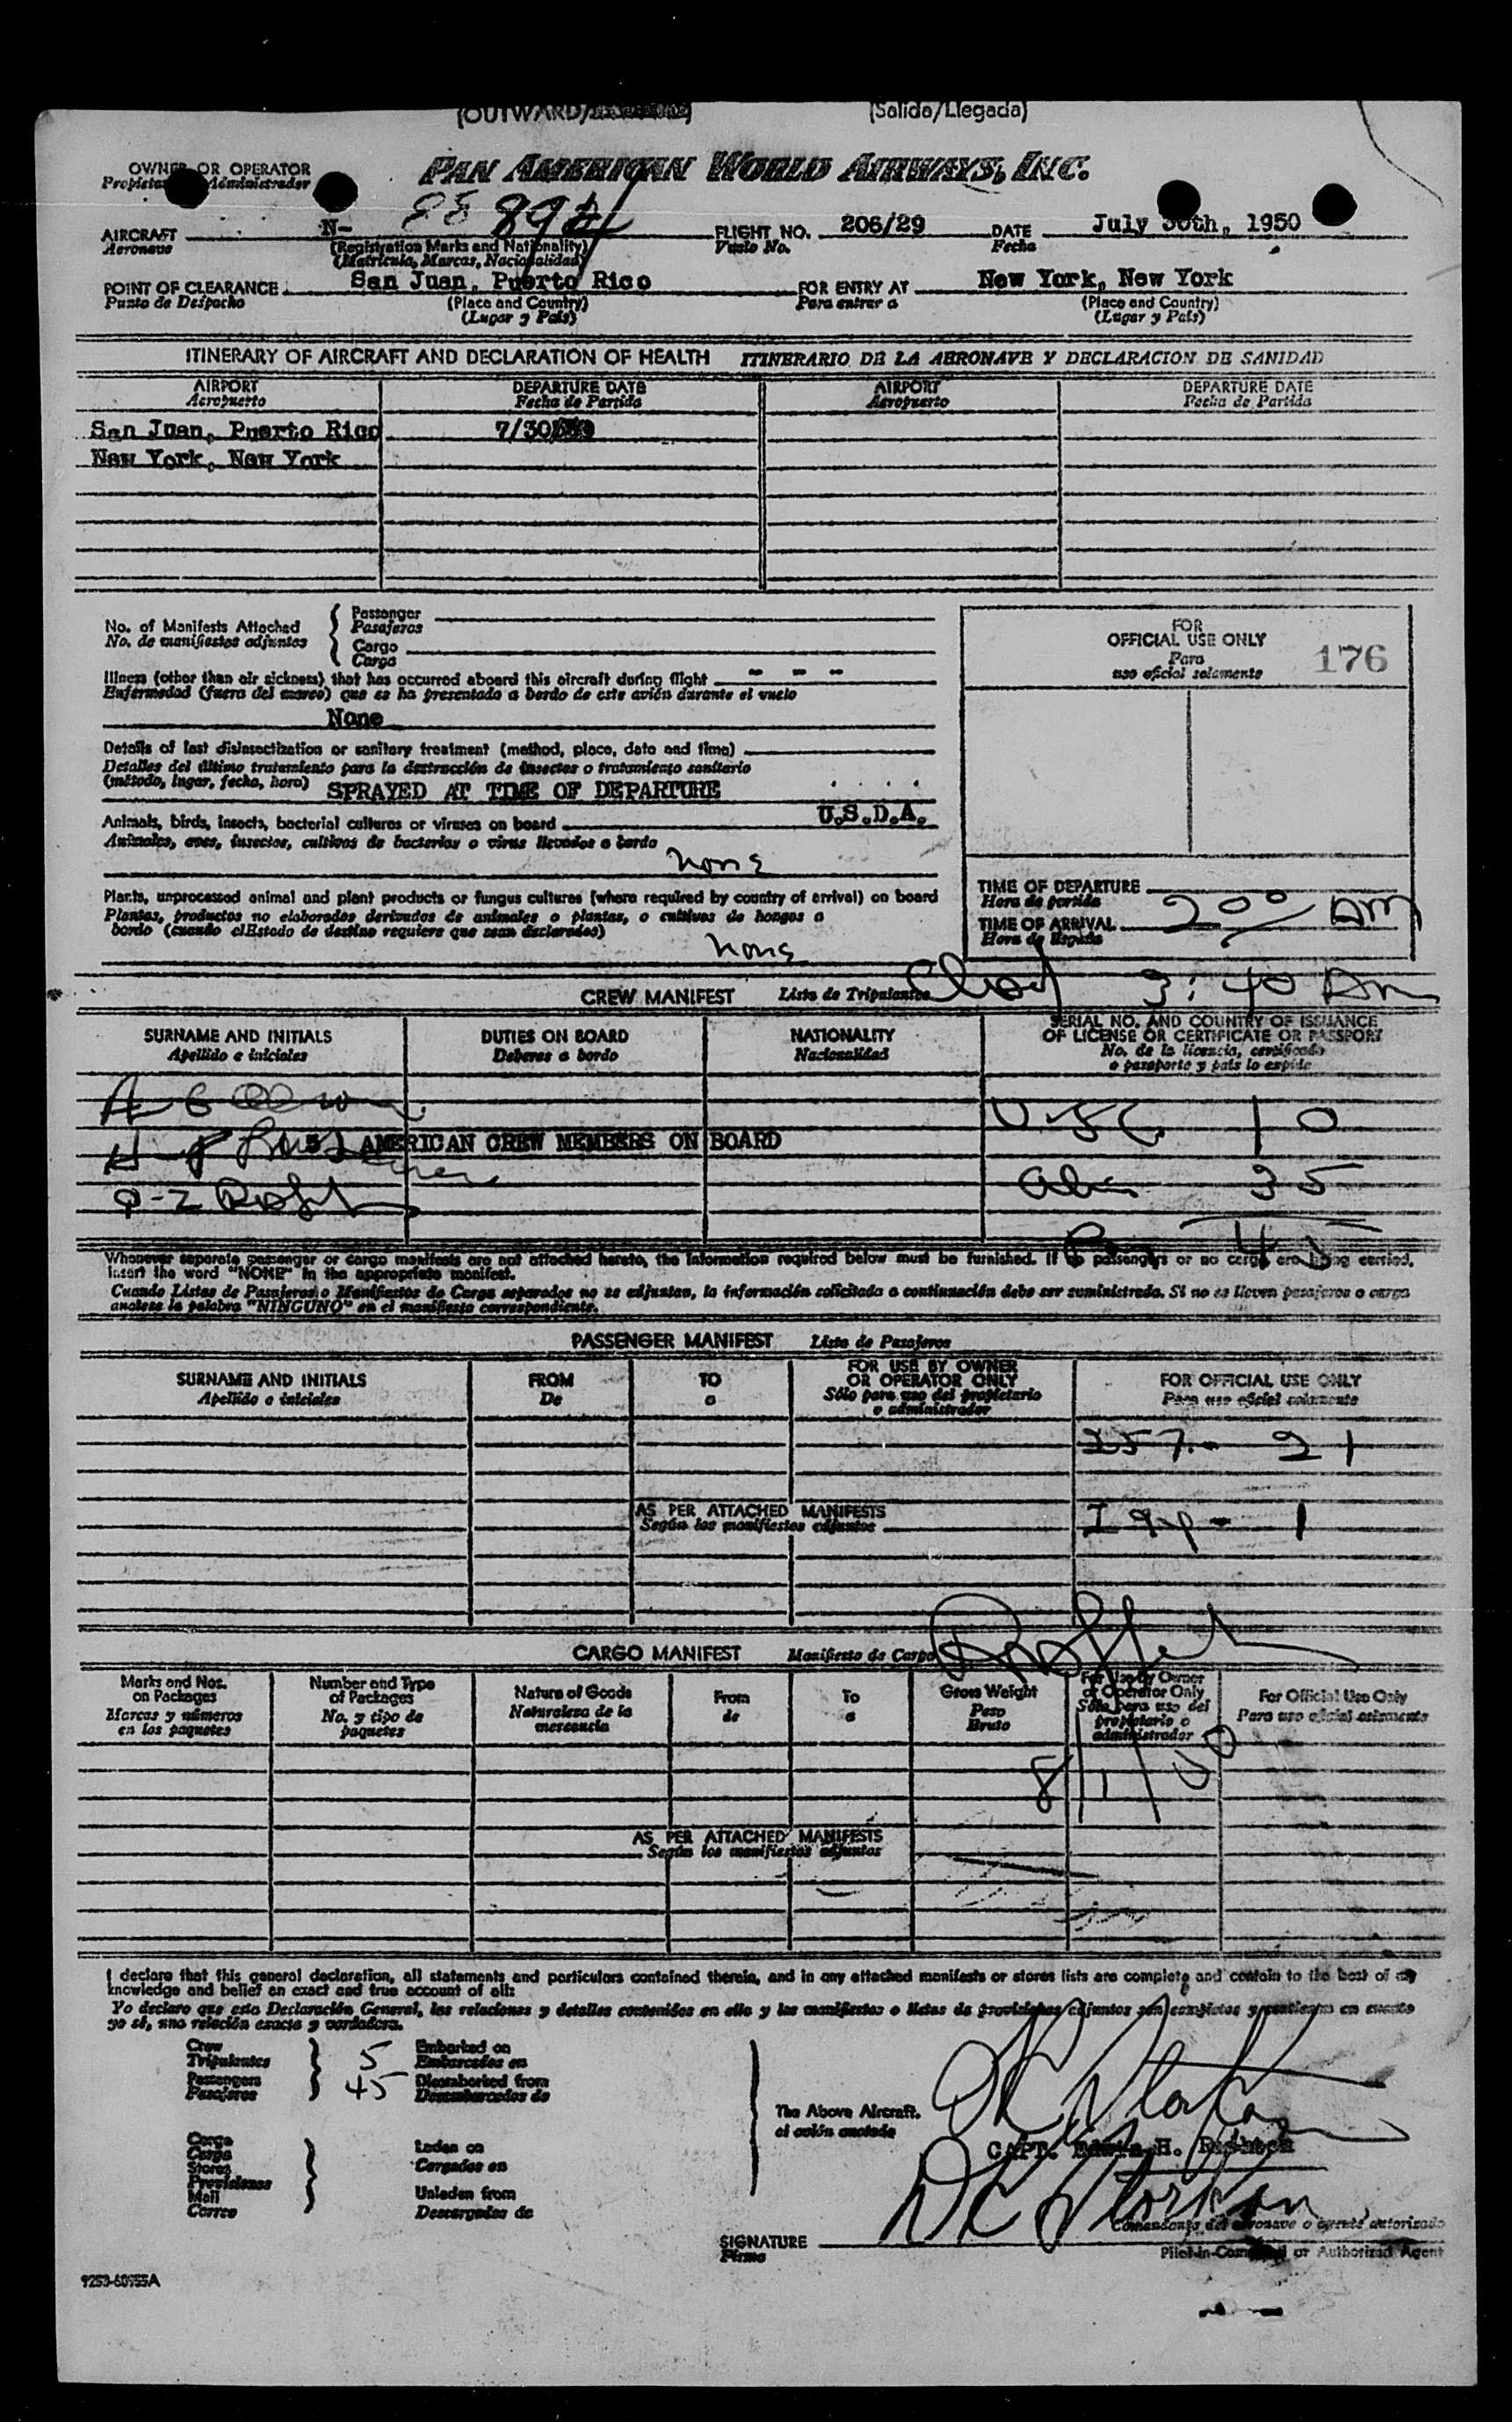 (OUTWARD/ (Salida/Llegada)
OWNER OR OPERATOR PAN AMERICAN WORLD AIRWAYS, INC.
Administrador
AIRCRAFT N- FLIGHT NO. 206/29 DATE July 30th, 1950
Aeronave (Registration Marks and Nationality) Vuelo No. Fecha
(Matrícula, Marcas, Nacionalidad)
POINT OF CLEARANCE San Juan, Puerto Rico FOR ENTRY AT New York, New York
Punto de Despacho (Place and Country) Para entrar a (Place and Country)
(Lugar y País) (Lugar y País)
ITINERARY OF AIRCRAFT AND DECLARATION OF HEALTH ITINERARIO DE LA AERONAVE Y DECLARACION DE SANIDAD
AIRPORT DEPARTURE DATE AIRPORT DEPARTURE DATE
Aeropuerto Fecha de Partida Aeropuerto Fecha de Partida
San Juan, Puerto Rico 7/30
New York, New York
No. of Manifests Attached Passenger
No. de manifiestos adjuntos Pasajeros
Cargo
Carga
FOR
OFFICIAL USE ONLY 176
Para
uso oficial solamente
Illness (other than air sickness) that has occurred aboard this aircraft during flight - - -
Enfermedad (fuera del mareo) que se ha presentado a bordo de este avión durante el vuelo
None
Details of last disinsectization or sanitary treatment (method, place, date and time)
Detalles del último tratamiento para la destrucción de insectos o tratamiento sanitario
(método, lugar, fecha, hora) SPRAYED AT TIME OF DEPARTURE
U.S.D.A.
Animals, birds, insects, bacterial cultures or viruses on board
Animales, aves, insectos, cultivos de bacterias o virus llevados a bordo
none
Plants, unprocessed animal and plant products or fungus cultures (where required by country of arrival) on board
Plantas, productos no elaborados derivados de animales o plantas, o cultivos de hongos a
bordo (cuando el Estado de destino requiere que sean declarados)
none
TIME OF DEPARTURE
Hora de partida 2 00 AM
TIME OF ARRIVAL
Hora de llegada
3:40 AM
CREW MANIFEST Lista de Tripulantes
SURNAME AND INITIALS DUTIES ON BOARD NATIONALITY SERIAL NO. AND COUNTRY OF ISSUANCE
Apellido e iniciales Deberes a bordo Nacionalidad OF LICENSE OR CERTIFICATE OR PASSPORT
No. de la licencia, certificado
o pasaporte y país lo expide
USC 10
5 AMERICAN CREW MEMBERS ON BOARD
35
45
Whenever separate passenger or cargo manifests are not attached hereto, the information required below must be furnished. If no passengers or no cargo are being carried,
insert the word "NONE" in the appropriate manifest.
Cuando Listas de Pasajeros o Manifiestos de Carga separados no se adjuntan, la información solicitada a continuación debe ser suministrada. Si no se lleven pasajeros o carga
anótese la palabra "NINGUNO" en el manifiesto correspondiente.
PASSENGER MANIFEST Lista de Pasajeros
SURNAME AND INITIALS FROM TO FOR USE BY OWNER FOR OFFICIAL USE ONLY
Apellido e iniciales De a OR OPERATOR ONLY Para uso oficial solamente
Sólo para uso del propietario
o administrador
257 - 21
AS PER ATTACHED MANIFESTS
Según los manifiestos adjuntos
1
CARGO MANIFEST Manifiesto de Carga
Marks and Nos. Number and Type Nature of Goods From To Gross Weight For Use by Owner For Official Use Only
on Packages of Packages Naturaleza de la de a Peso or Operator Only Para uso oficial solamente
Marcas y números No. y tipo de mercancía Bruto Sólo para uso del
en los paquetes paquetes propietario o
administrador
8/1/50
AS PER ATTACHED MANIFESTS
Según los manifiestos adjuntos
I declare that this general declaration, all statements and particulars contained therein, and in any attached manifests or stores lists are complete and contain to the best of my
knowledge and belief an exact and true account of all:
Yo declaro que esta Declaración General, las relaciones y detalles contenidos en ella y los manifiestos o listas de provisiones adjuntos son completos y contienen en cuanto
yo sé, una relación exacta y verdadera.
Crew 5 Embarked on
Tripulantes Embarcados en
Passengers 45 Disembarked from
Pasajeros Desembarcados de
The Above Aircraft.
el avión anotado
CAPT. H.
Cargo
Carga Laden on
Stores Cargados en
Provisiones
Mail Unladen from
Correo Descargados de
SIGNATURE Comandante del aeronave o agente autorizado
Firma Pilot-in-Command or Authorized Agent
9253-60955A